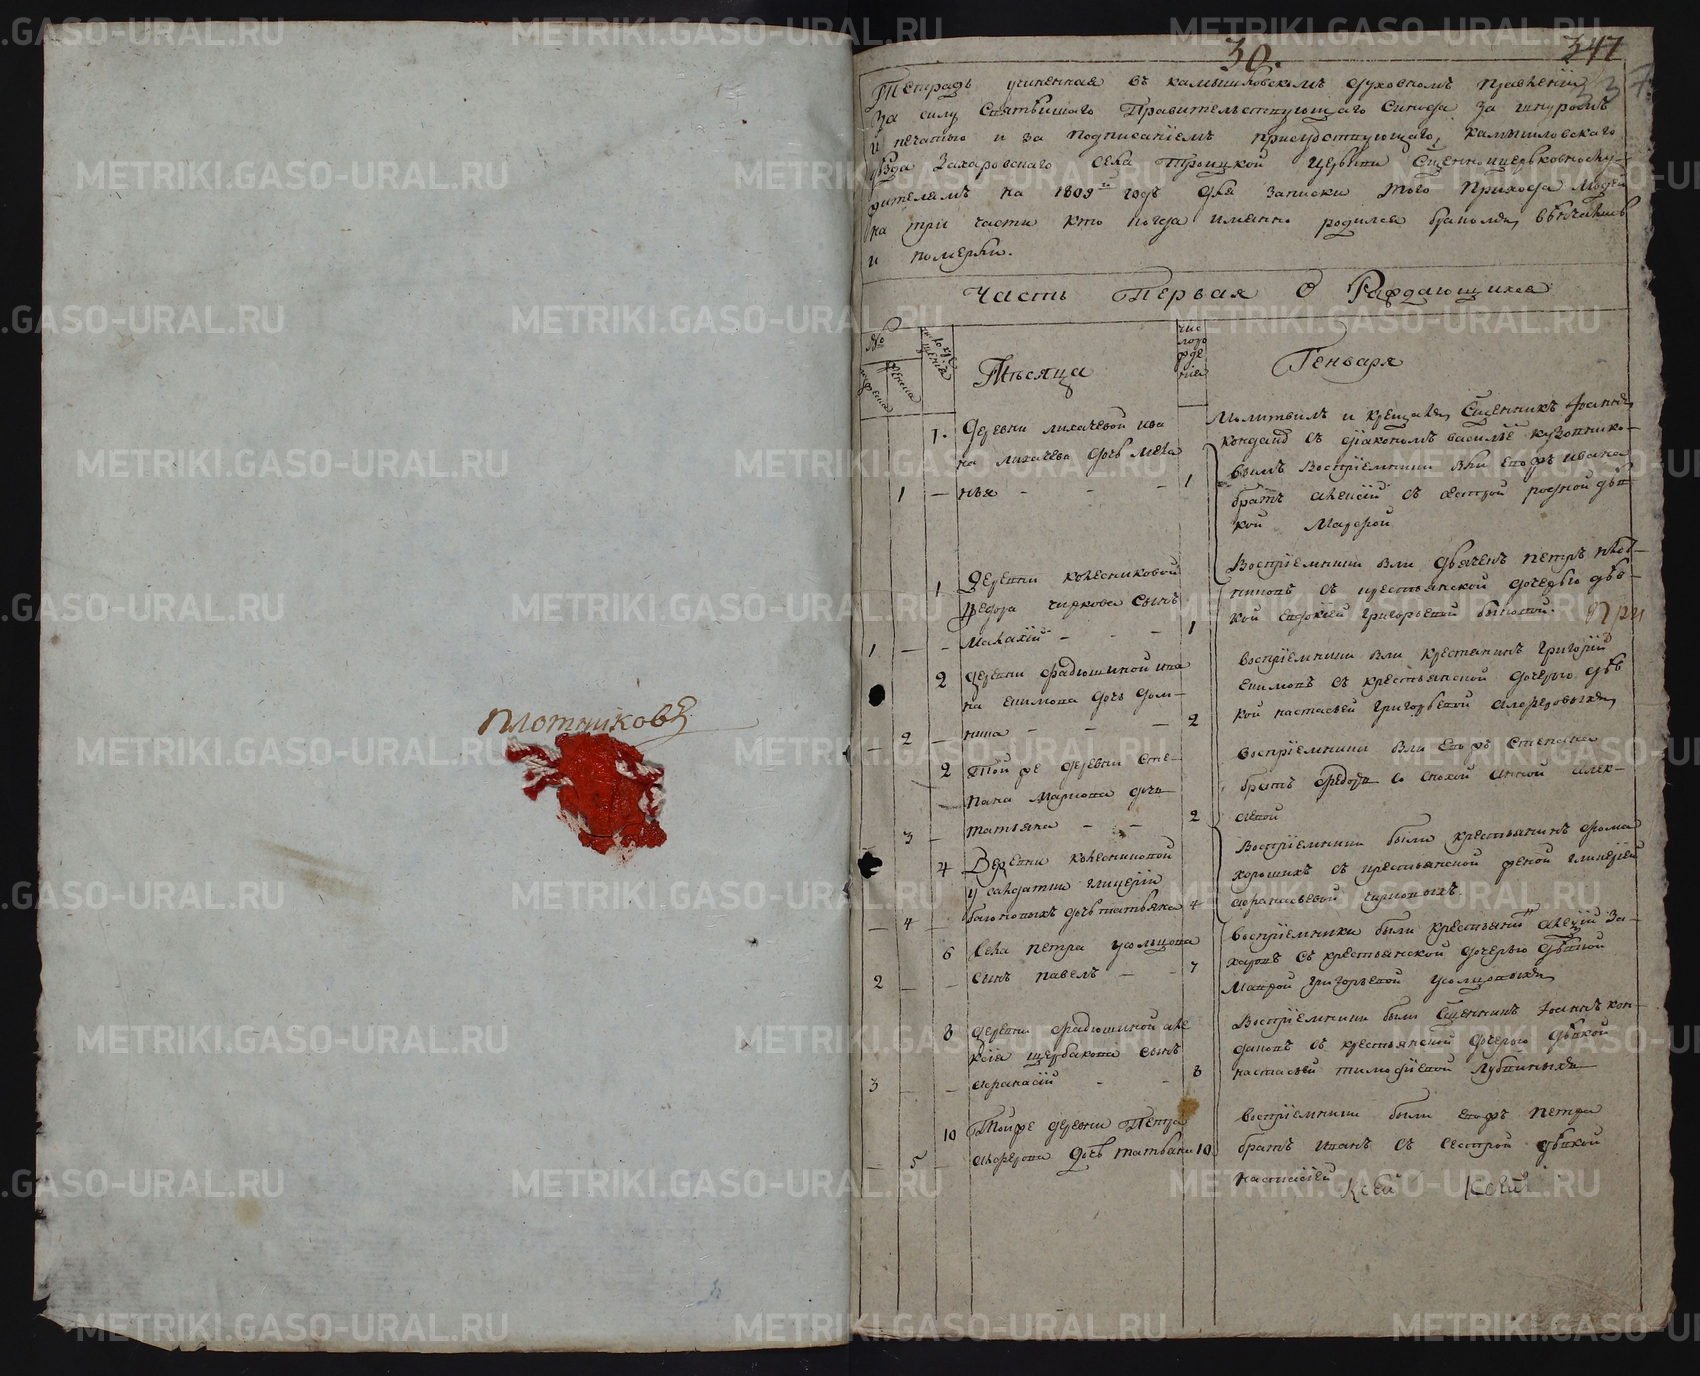 Плотниковъ
30.
347
337
Тетрадь учиненная въ камышловскомъ духовномъ правленіи
за силу Святѣйшаго Правительствующаго Синода за шнуромъ
и печатью и за подписаніемъ присудствующаго, камышловскаго
уѣзда Захаровскаго села Троицкой церкви Сщенноцерковнослу-
жителямъ на 1809й годъ для записки того прихода людей
на три части кто когда именно родился браномъ вѣнчались
и померли.
Часть Первая О Раждающихся
№
мужеска
женска
Мѣсяца
число рожденія
Генваря
1. Деревни лихачевой ива
на лихачева дочь мела
1 — нья - - - 1
Молитвилъ и крещалъ Сщенникъ Іоаннъ
кондаковъ съ діакономъ василіемъ
вымъ воспріемники были егожъ ивана
братъ алексій съ сестрой родной дѣв
кой Матроной
1 Деревни колесниковой
федора чиркова сынъ
1 — - малахій - - - 1
Воспріемники были дьячекъ петръ
съ крестьянской дочерью дѣв-
кой Григорьевой
При
2 деревни фадюшиной ива
на екимова дочь дом-
— 2 — ника - - - 2
воспріемники были крестьянинъ григорій
екимовъ съ крестьянской дочерью дѣв
кой настасьей Григорьевой алферовыхъ
2 Той же деревни сте-
пана Маркова дочь
3 — татьяна - - 2
воспріемники были егожъ степана
братъ федоръ со снохой анной алек-
сѣевой
4 Деревни колесниковой
у салдатки гликеріи
— 4 — дочь татьяна 4
Воспріемники были крестьянинъ фома
хорошихъ съ крестьянской женой гликеріей
афанасьевой чирковыхъ.
6 села петра усольцова
2 — - сынъ павелъ - - 7
воспріемники были крестьянинъ алексій за-
харовъ съ крестьянской дочерью дѣвкой
Маврой григорьевой усольцовыхъ
8 деревни фадюшиной але
ксія щербакова сынъ
3 — - афанасій - - 8
Воспріемники были Сщенникъ Іоаннъ кон-
даковъ съ крестьянской дочерью дѣвкой
настасьей тимофіевой
10 Тойже деревни Петра
— 5 — алферова дочь татьяна 10
воспріемники были егожъ петра
братъ иванъ съ сестрой дѣвкой
настасіей